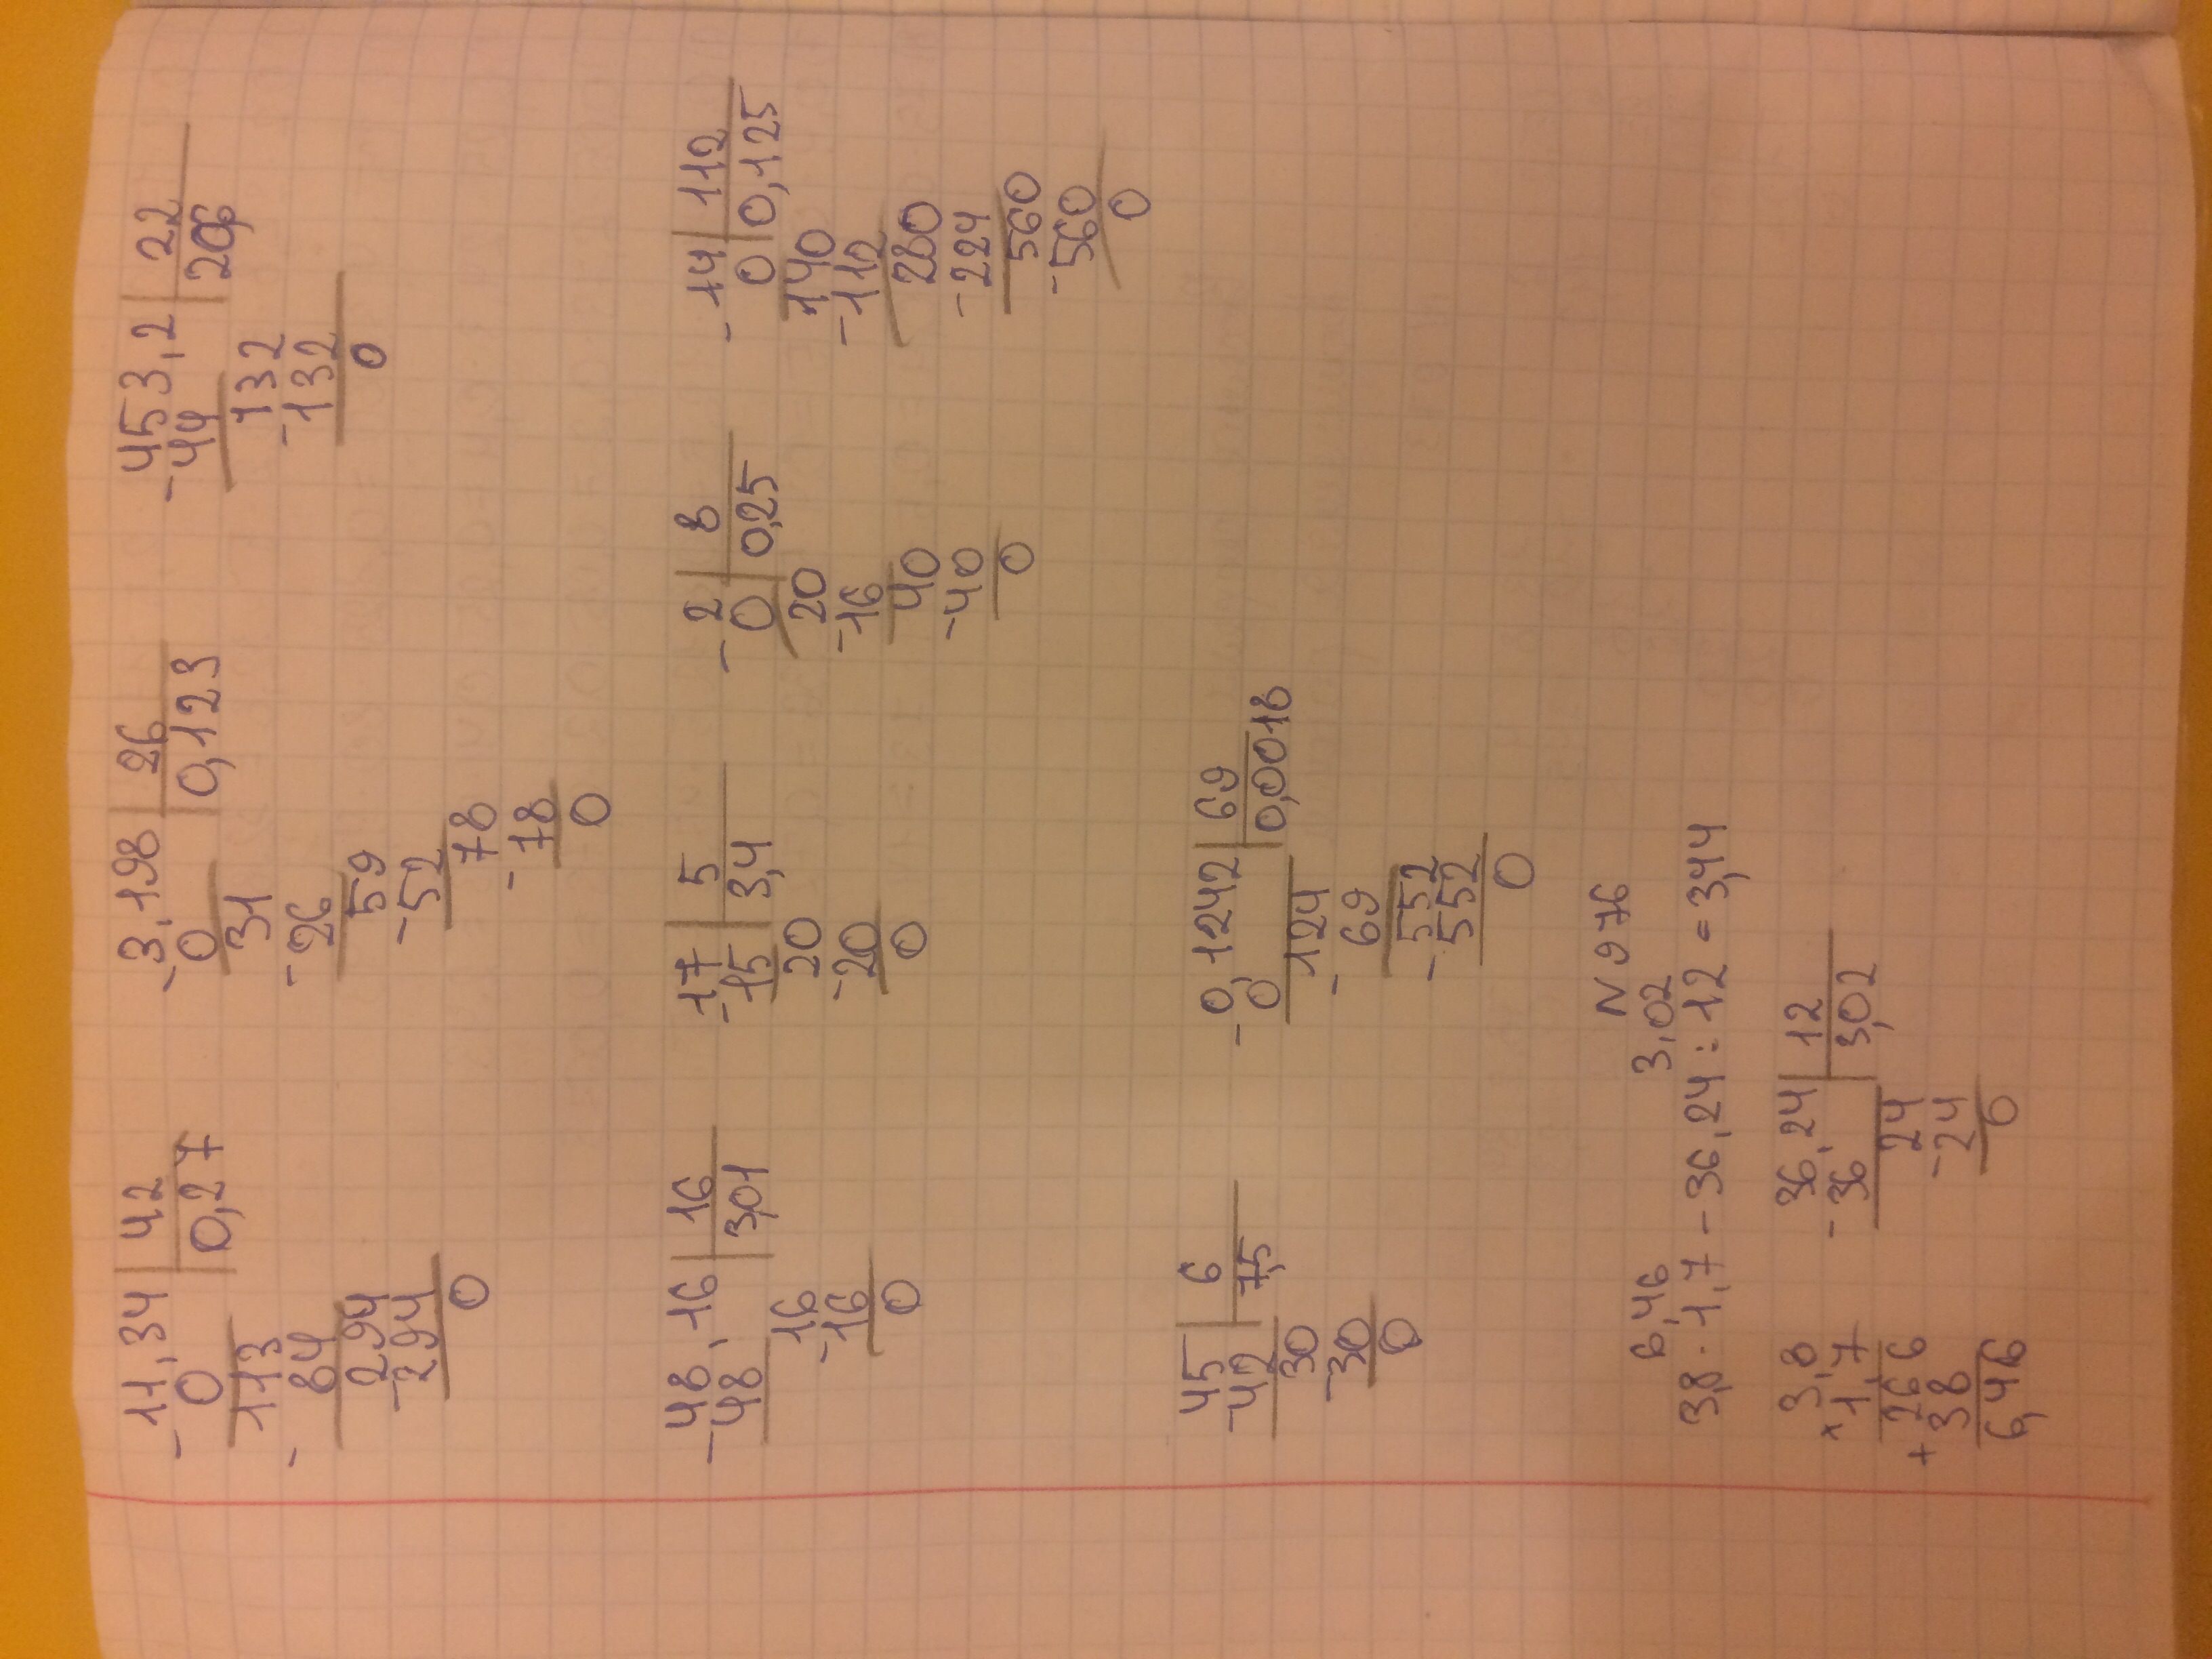 -11,34 | 42
0 | 0,27
113
- 84
294
-294
0
-3,198 | 26
0 | 0,123
31
-26
59
-52
78
-78
0
-453,2 | 22
-44
132
-132
0
-48,16 | 16
48 | 3,01
16
-16
0
-17 | 5
15 | 3,4
20
-20
0
-2 | 8
0 | 0,25
20
-16
40
-40
0
-14 | 112
0 | 0,125
140
-112
280
-224
560
-560
0
45 | 6
-42 | 7,5
30
-30
0
-0,1242 | 69
0 | 0,0018
124
- 69
552
-552
0
N 976
6,46 3,02
3,8 · 1,7 - 36,24 : 12 = 3,44
× 3,8
1,7
+ 266
38
6,46
36,24 | 12
-36 | 3,02
24
-24
0